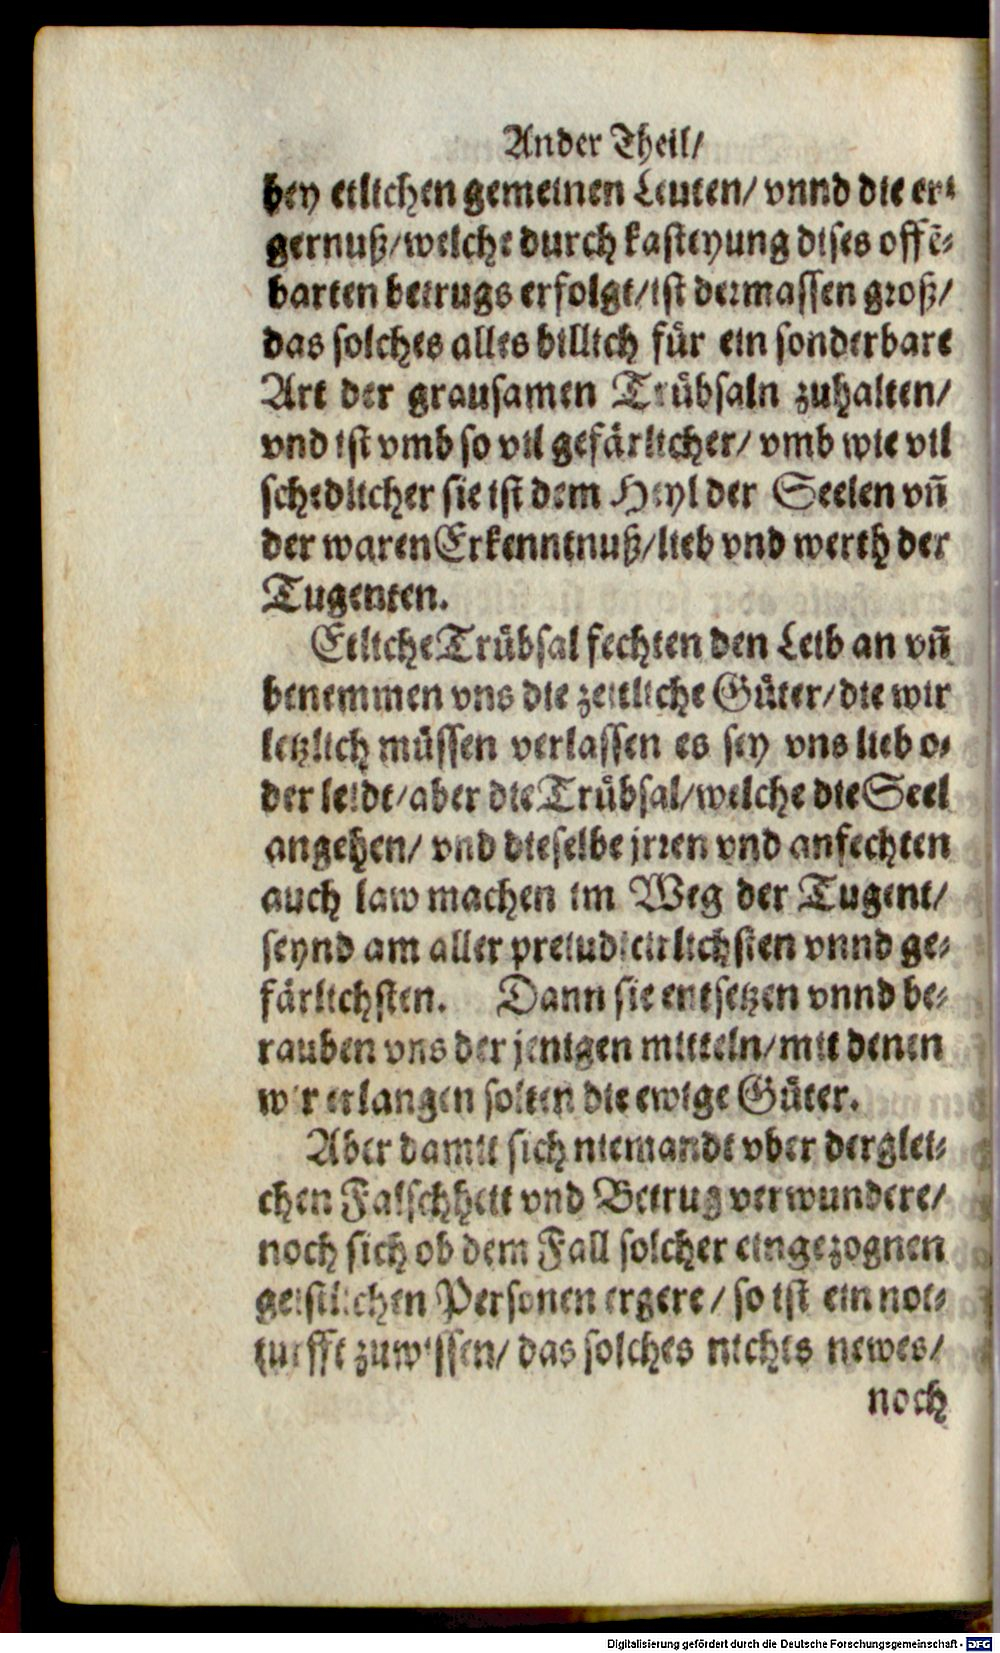 Ander Theil/
bey etlichen gemeinen Leuten/ vnnd die er-
gernuß/welche durch kasteyung dises offē-
barten betrugs erfolgt/ist dermassen groß/
das solches alles billich für ein sonderbare
Art der grausamen Trübsaln zuhalten/
vnd ist vmb so vil gefärlicher/ vmb wie vil
schedlicher sie ist dem Heyl der Seelen vn̄
der waren Erkenntnuß/lieb vnd werth der
Tugenten.
Etliche Trübsal fechten den Leib an vn̄
benemmen vns die zeitliche Güter/die wir
letzlich müssen verlassen es sey vns lieb o-
der leidt/aber die Trübsal/welche die Seel
angehen/ vnd dieselbe jrren vnd anfechten
auch law machen im Weg der Tugent/
seynd am aller preiudicirlichsten vnnd ge-
färlichsten. Dann sie entsetzen vnnd be-
rauben vns der jenigen mitteln/mit denen
wir erlangen solten die ewige Güter.
Aber damit sich niemandt vber derglei-
chen Falschheit vnd Betrug verwundere/
noch sich ob dem Fall solcher eingezognen
geistlichen Personen ergere/ so ist ein not-
turfft zuwissen/ das solches nichts newes/
noch
Digitalisierung gefördert durch die Deutsche Forschungsgemeinschaft - DFG